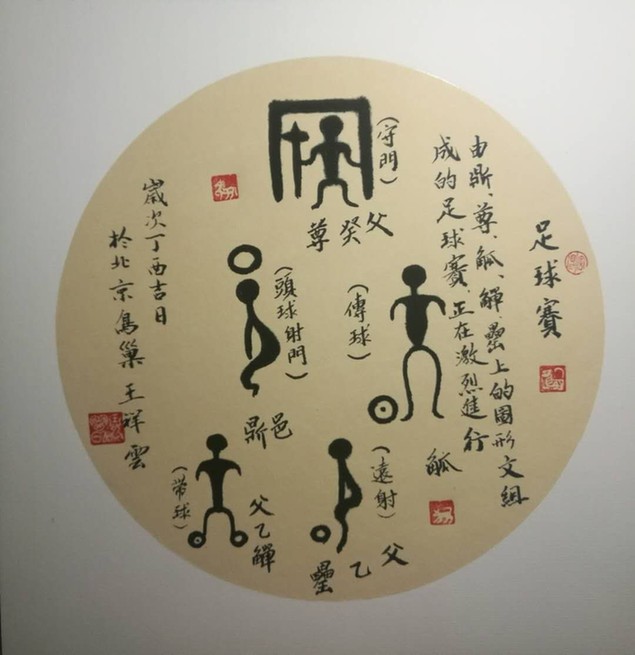 足球賽
由鼎、尊、觚、觶、罍上的圖形文組
成的足球賽,正在激烈進行
(守門)
父癸尊
(傳球)
觚
(頭球射門)
邑鼎
(遠射)
父乙罍
(带球)
父乙觶
歲次丁酉吉日
於北京鳥巢王祥雲